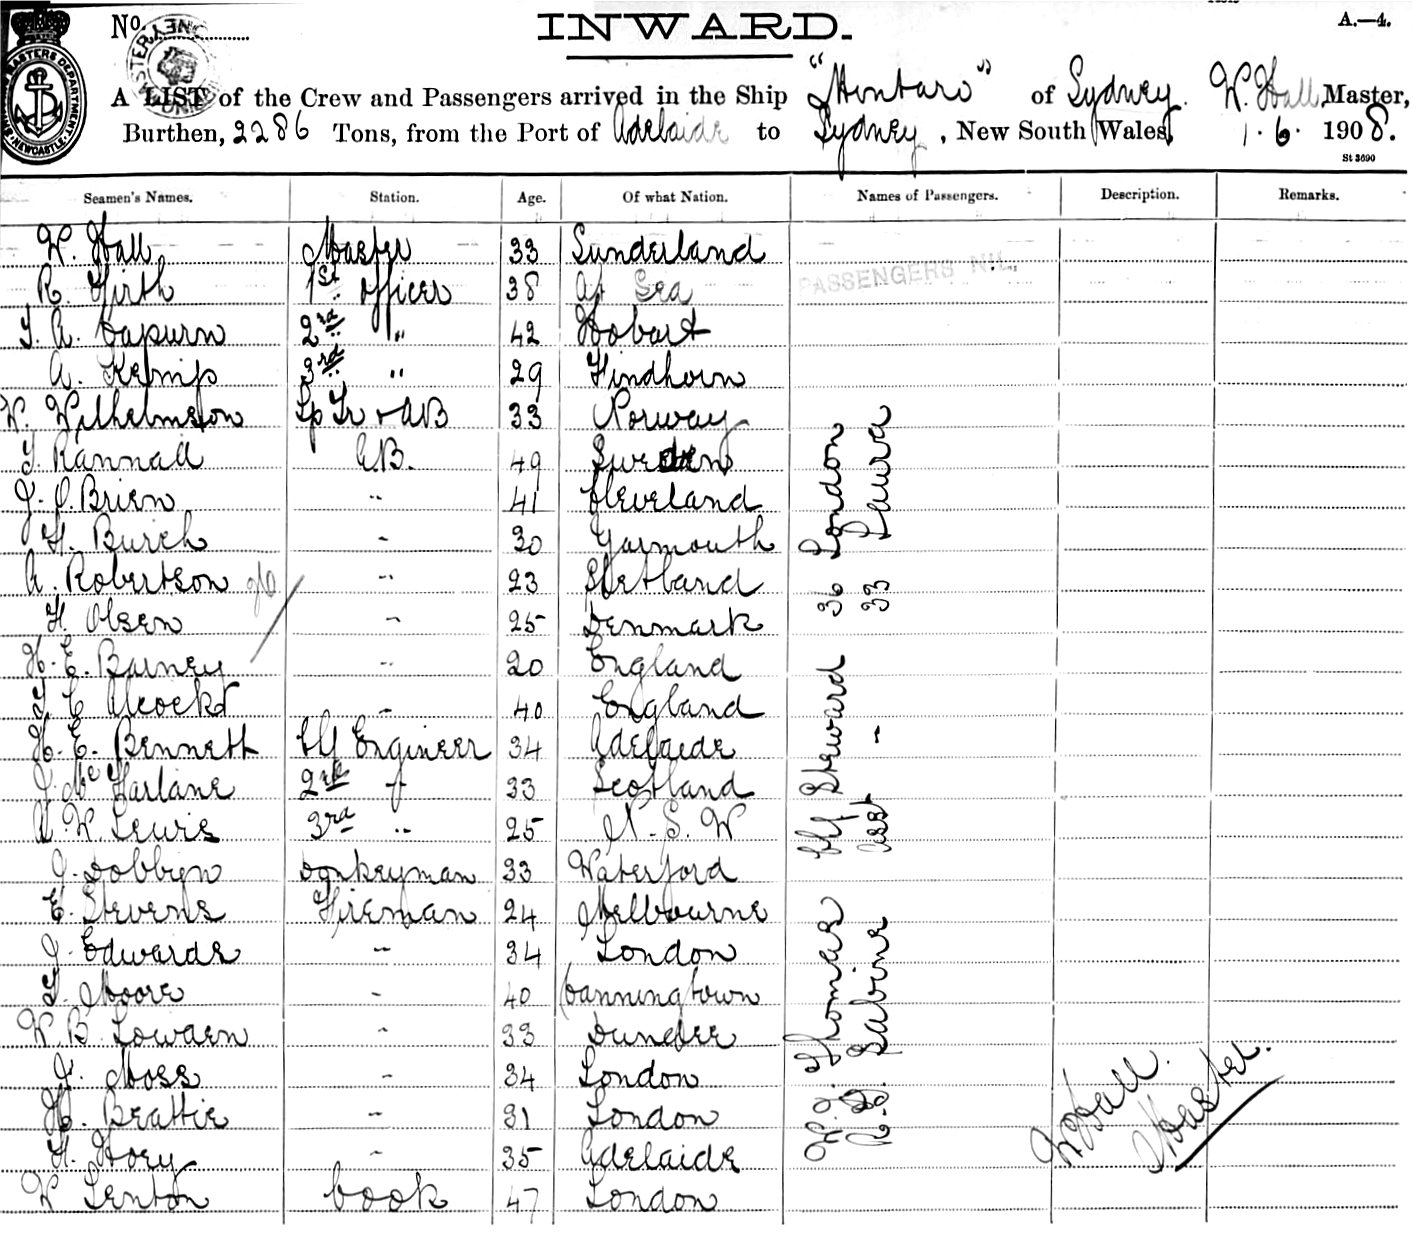 No.
INWARD.
A.—4.
A LIST of the Crew and Passengers arrived in the Ship "Hontaro" of Sydney. W. Hall, Master,
Burthen, 2286 Tons, from the Port of Adelaide to Sydney, New South Wales, 1.6.1908.
St 3690
Seamen's Names. Station. Age. Of what Nation. Names of Passengers. Description. Remarks.
W. Hall Master 33 Sunderland
R. Firth 1st Officer 38 At Sea PASSENGERS NIL.
T. A. Capurn 2nd " 42 Hobart
A. Kemp 3rd " 29 Findhorn
W. Wilhelmson Lp Tr + AB 33 Norway
T. Rannall A.B. 49 Sweden
J. O.Brien " 41 Cleveland
H. Burch " 30 Yarmouth
A. Robertson " 23 Shetland
H. Olsen " 25 Denmark
H. E. Barney " 20 England
T C Alcock " 40 England
H. E. Bennett Chf Engineer 34 Adelaide
J. Mc Farlane 2nd " 33 Scotland
A. W. Lewis 3rd " 25 N.S.W
J. Dobbyn Donkeyman 33 Waterford
E. Stevens Fireman 24 Melbourne
J. Edwards " 34 London
T. Moore " 40 Canningtown
W. B. Lowden " 33 Dundee
J. Moss " 34 London
H. Beattie " 31 London
H. Hoey " 35 Adelaide
W Lenton Cook 47 London
W. J. Thomas Chf Steward 36 London
R. J. Sabine Asst " 33 Laura
W Hall.
Master.